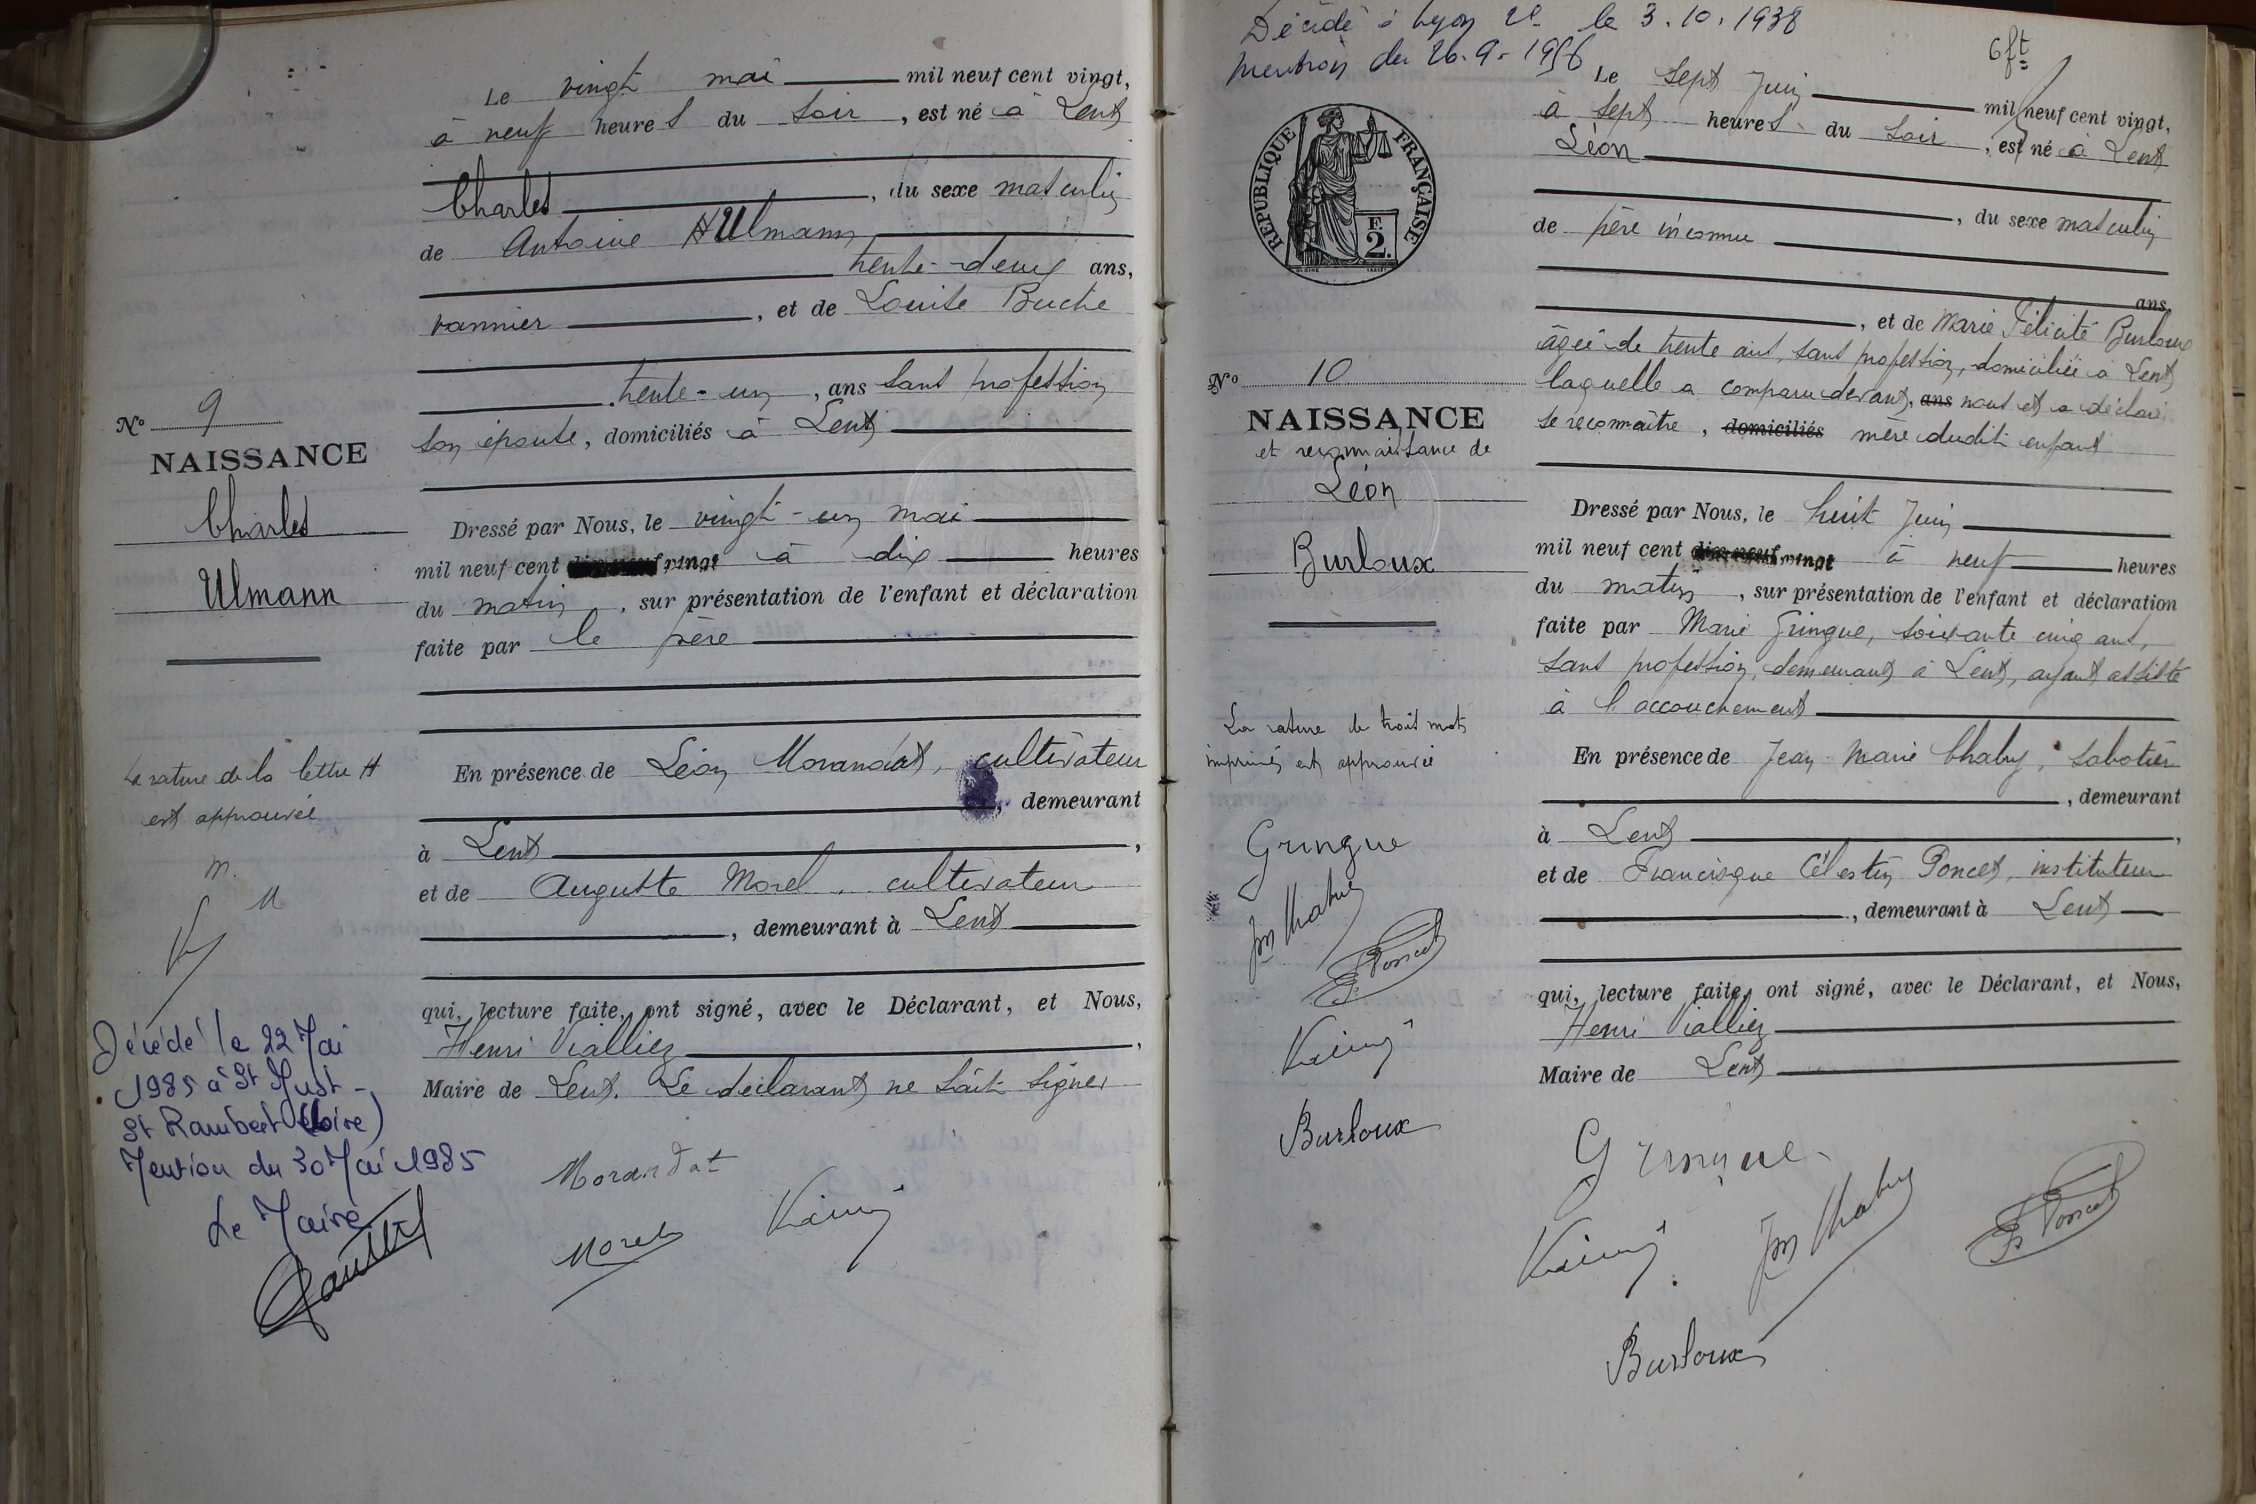 Le vingt mai mil neuf cent vingt,
à neuf heures du soir, est né à Lent
Charles, du sexe masculin
de Antoine H Ulmann
trente-deux ans,
vannier, et de Louise Buche
trente-un, ans sans profession
son épouse, domiciliés à Lent
Dressé par Nous, le vingt-un mai
mil neuf cent vingt à dix heures
du matin, sur présentation de l'enfant et déclaration
faite par le père
En présence de Léon Morandat, cultivateur
, demeurant
à Lent,
et de Auguste Morel, cultivateur
, demeurant à Lent
qui, lecture faite, ont signé, avec le Déclarant, et Nous,
Henri Vialliez,
Maire de Lent. Le déclarant ne sait signer
Morandat
Morel
No 9
NAISSANCE
Charles
Ulmann
La rature de la lettre H
est approuvée
m.
M
Décédé le 22 Mai
1985 à St Just-
St Rambert (Loire)
Mention du 30 Mai 1985
Le Maire
Décédé à Lyon 2e le 3.10.1938
mention du 26.9.1956
6ft
Le sept Juin mil neuf cent vingt,
à sept heures du soir, est né à Lent
Léon
, du sexe masculin
de père inconnu
ans
, et de Marie Félicité Burloux
âgée de trente ans, sans profession, domiciliée à Lent
laquelle a comparu devant, ans nous et a déclaré
se reconnaître, domiciliés mère dudit enfant
Dressé par Nous, le huit Juin
mil neuf cent dix-neuf vingt à neuf heures
du matin, sur présentation de l'enfant et déclaration
faite par Marie Gringue, soixante cinq ans,
sans profession, demeurant à Lent, ayant assisté
à l'accouchement
En présence de Jean Marie Chabry, sabotier
, demeurant
à Lent,
et de Francisque Célestin Poncet, instituteur
, demeurant à Lent
qui, lecture faite, ont signé, avec le Déclarant, et Nous,
Henri Vialliez
Maire de Lent
Gringue
Jm Chabry
Poncet
Burloux
RÉPUBLIQUE FRANÇAISE
F.
2.
No 10
NAISSANCE
et reconnaissance de
Léon
Burloux
La rature de trois mots
imprimés est approuvée
Gringue
Jm Chabry
Poncet
Burloux